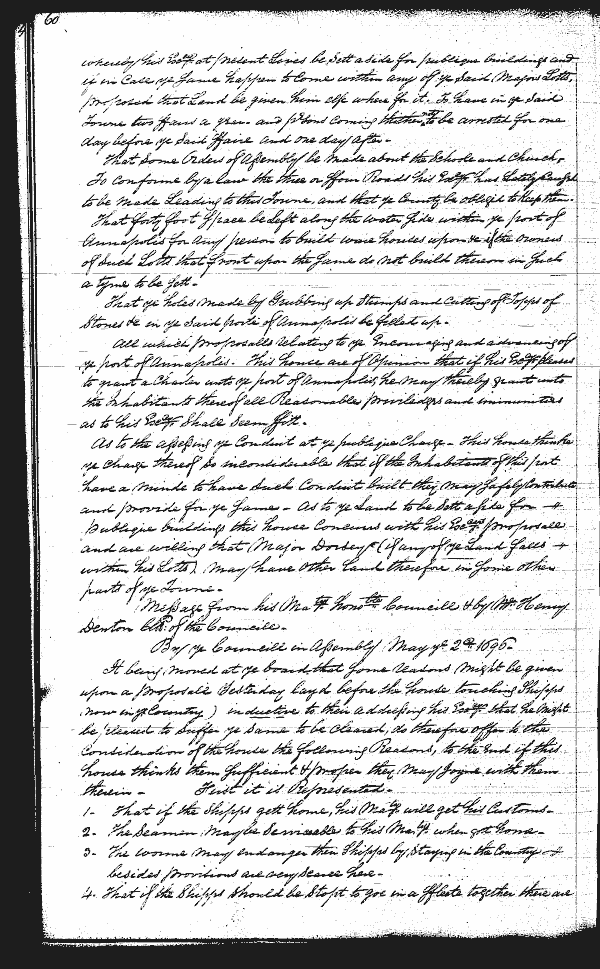 60
whereby his Excy at present Lives be Sett aside for publique buildings and
if in Case ye Same happen to Come within any of ye Said Majors Lotts,
proposed that Land be given him else where for it. To have in ye Said
Towne two ffairs a year and psons Coming thither to be arrested for one
day before ye Said ffaire and one day after.
That Some Orders of Assembly be made about the Schole and Church,
To Conforme by a Law the three or ffour Roads his Excy has Lately Caused
to be made Leading to this Towne, and that ye County be obliged to keep them.
That forty foot Space be Left along the Water Side within ye port of
Annapolis for any person to build ware houses upon &c if the owners
of Such Lotts that front upon the Same do not build thereon in Such
a tyme to be Sett.
That ye holes made by Grubbing up Stumps and Cutting of Topps of
Stones &c in ye Said porte of Annapolis be filled up.
All which proposalls relating to ye Encouraging and advancing of
ye port of Annapolis. This house are of Opinion that if his Excy pleases
to grant a Charter unto ye port of Annapolis, he may thereby grant unto
the Inhabitants thereof all Reasonable priviledges and immunities
as to his Excy Shall Seem ffitt.
As to the assessing ye Conduit at ye publique Charge - This house thinks
ye Charge thereof So inconsiderable that if the Inhabitants of this port
have a minde to have Such Conduit built they may Safely Contribute
and provide for ye Same - As to ye Land to be Sett aside for
publique buildings this house Concurrs with his Excys proposall
and are willing that Major Dorsey (if any of ye Land falls
within his Lotts) may have other Land therefore in Some other
parts of ye Towne.
Message from his Matys Honble Councill &c by Mr Henry
Denton Clk of the Councill.
By ye Councill in Assembly May ye 2d 1696.
It being moved at ye board that Some reasons might be given
upon a proposall Yesterday Layd before the house touching Shipps
now in ye Country) inductive to their addressing his Excy that he Might
be pleased to Suffer ye Same to be Cleared, do therefore offer to the
Consideration of the house the following Reasons, to the End if this
house thinks them Sufficient & proper they may Joyne with them
therein - First it is Represented.
1- That if the Shipps gett home, his Maty will get his Customs.
2- The Seamen may be Serviceable to his Maty when got home.
3- The worme may endanger their Shipps by Staying in the Country
besides provitions are very Scarce here.
4- That if the Shipps Should be Stopt to goe in a ffleete together there are